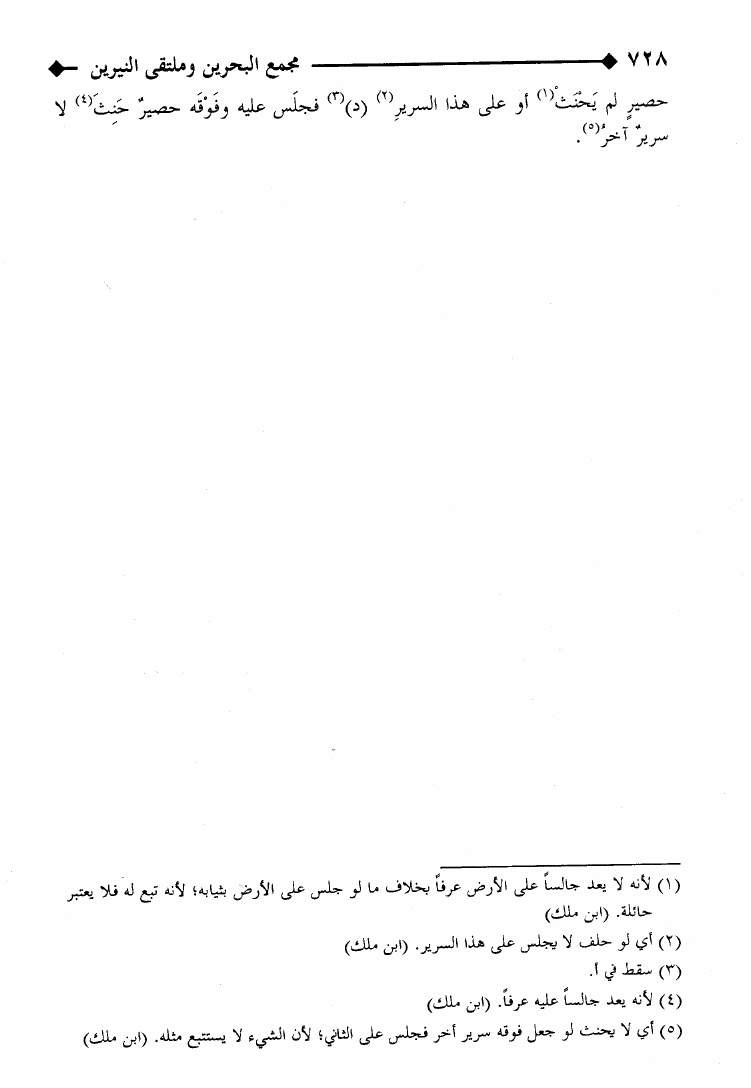 ٧٢٨ مجمع البحرين وملتقى النيرين
حصيرٍ لم يَحْنَثْ(١) أو على هذا السريرِ(٢) (د)(٣) فجلَس عليه وفَوْقَه حصيرٌ حَنِثَ(٤) لا
سريرٌ آخرُ(٥).
(١) لأنه لا يعد جالساً على الأرض عرفاً بخلاف ما لو جلس على الأرض بثيابه؛ لأنه تبع له فلا يعتبر
حائلة. (ابن ملك)
(٢) أي لو حلف لا يجلس على هذا السرير. (ابن ملك)
(٣) سقط في أ.
(٤) لأنه يعد جالساً عليه عرفاً. (ابن ملك)
(٥) أي لا يحنث لو جعل فوقه سرير أخر فجلس على الثاني؛ لأن الشيء لا يستتبع مثله. (ابن ملك)